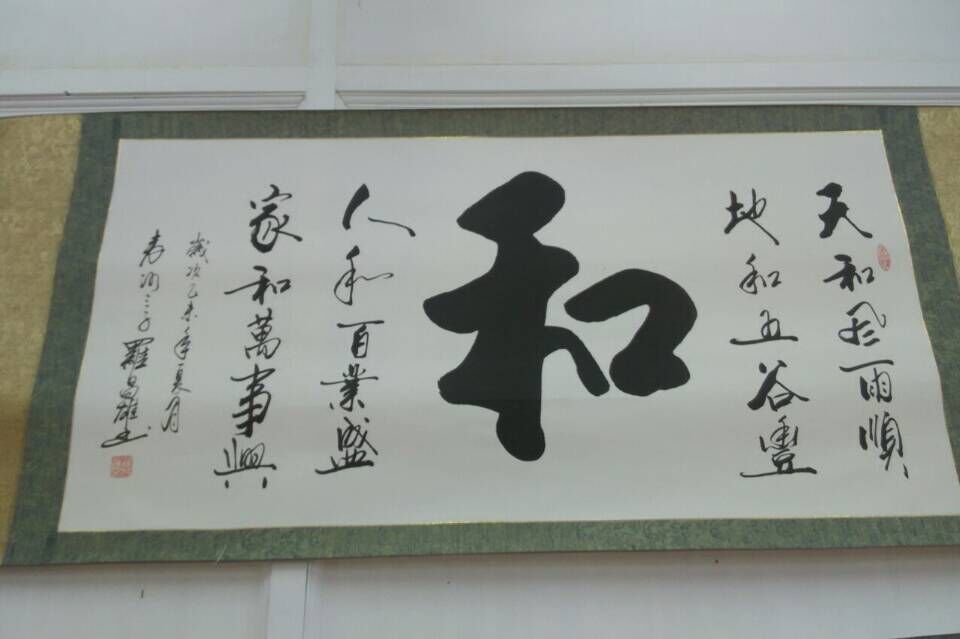 天和風雨順
地和五谷豐
和
人和百業盛
家和萬事興
歲次乙未年夏月
羅昌雄书